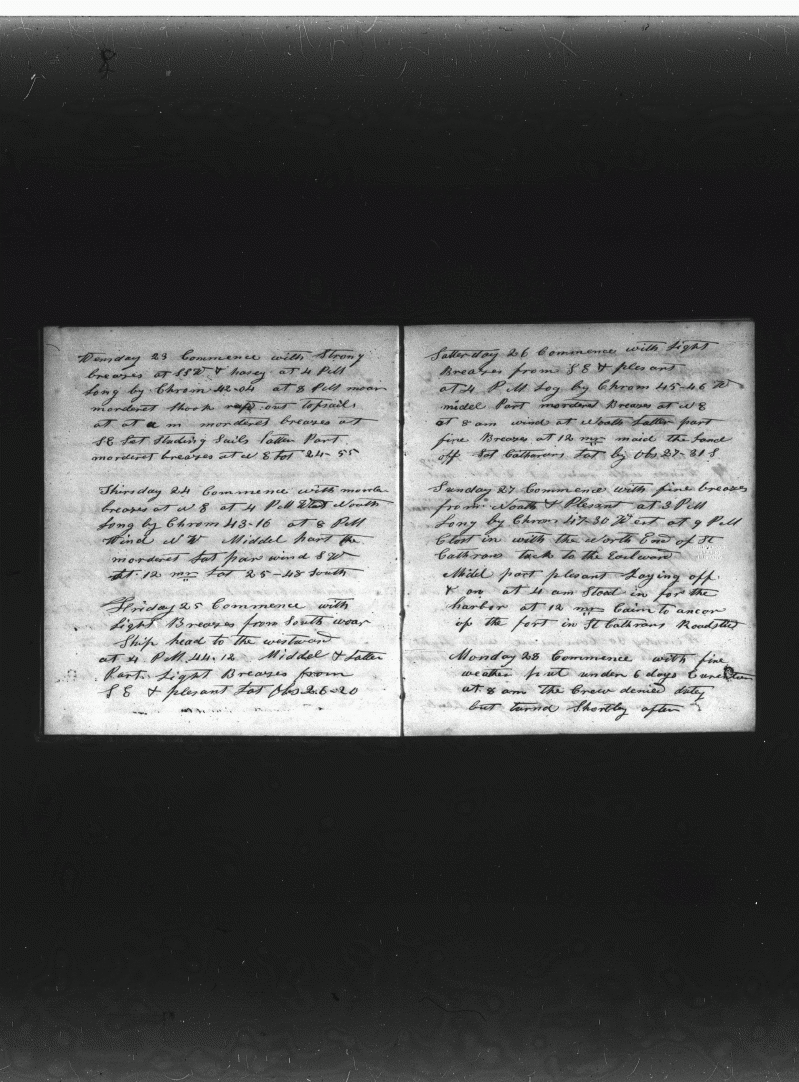 Wensday 23 Commence with Strong
breazes at SSW & hasey at 4 PM
Long by Chrom 42-04 at 8 PM mor
morderet shook out topsails
at at a m morderet breazes at
SE Sat Studing Sails latter Part
morderet breazes at N E Lat 24-55
Thirsday 24 Commence with morde
breazes at N E at 4 PM North
Long by Chrom 43-16 at 8 PM
Wind N W Middel part the
morderet Lat par wind S W
At 12 mr Lat 25-48 South
Friday 25 Commence with
Light Breazes from South wear
Ship head to the westward
at 4 P.M. 44-12 Middel & Latter
Part Light Breazes from
S E & plesant Lat Obs 26-20
Satterday 26 Commence with Light
Breazes from S E & plesant
at 4 P M Log by Chrom 45-46 W
midel Part morderet Breazes at N E
at 8 am wind at North Latter part
fine Breazes at 12 mr maid the Land
off Sat Catharans Lat by Obs 27-31 S
Sunday 27 Commence with fine breazes
from North & Plesant at 3 PM
Long by Chron 47-30 West at 9 PM
Clost in with the North End of St
Cathrans tack to the Eastward
Midel part plesant Laying off
& on at 4 am Stood in for the
harbor at 12 mr Caim to ancor
op the fort in St Cathrans Roadsted
Monday 28 Commence with fine
weather put under 6 days
at 8 am the Crew denied duty
but turnd Shortley after